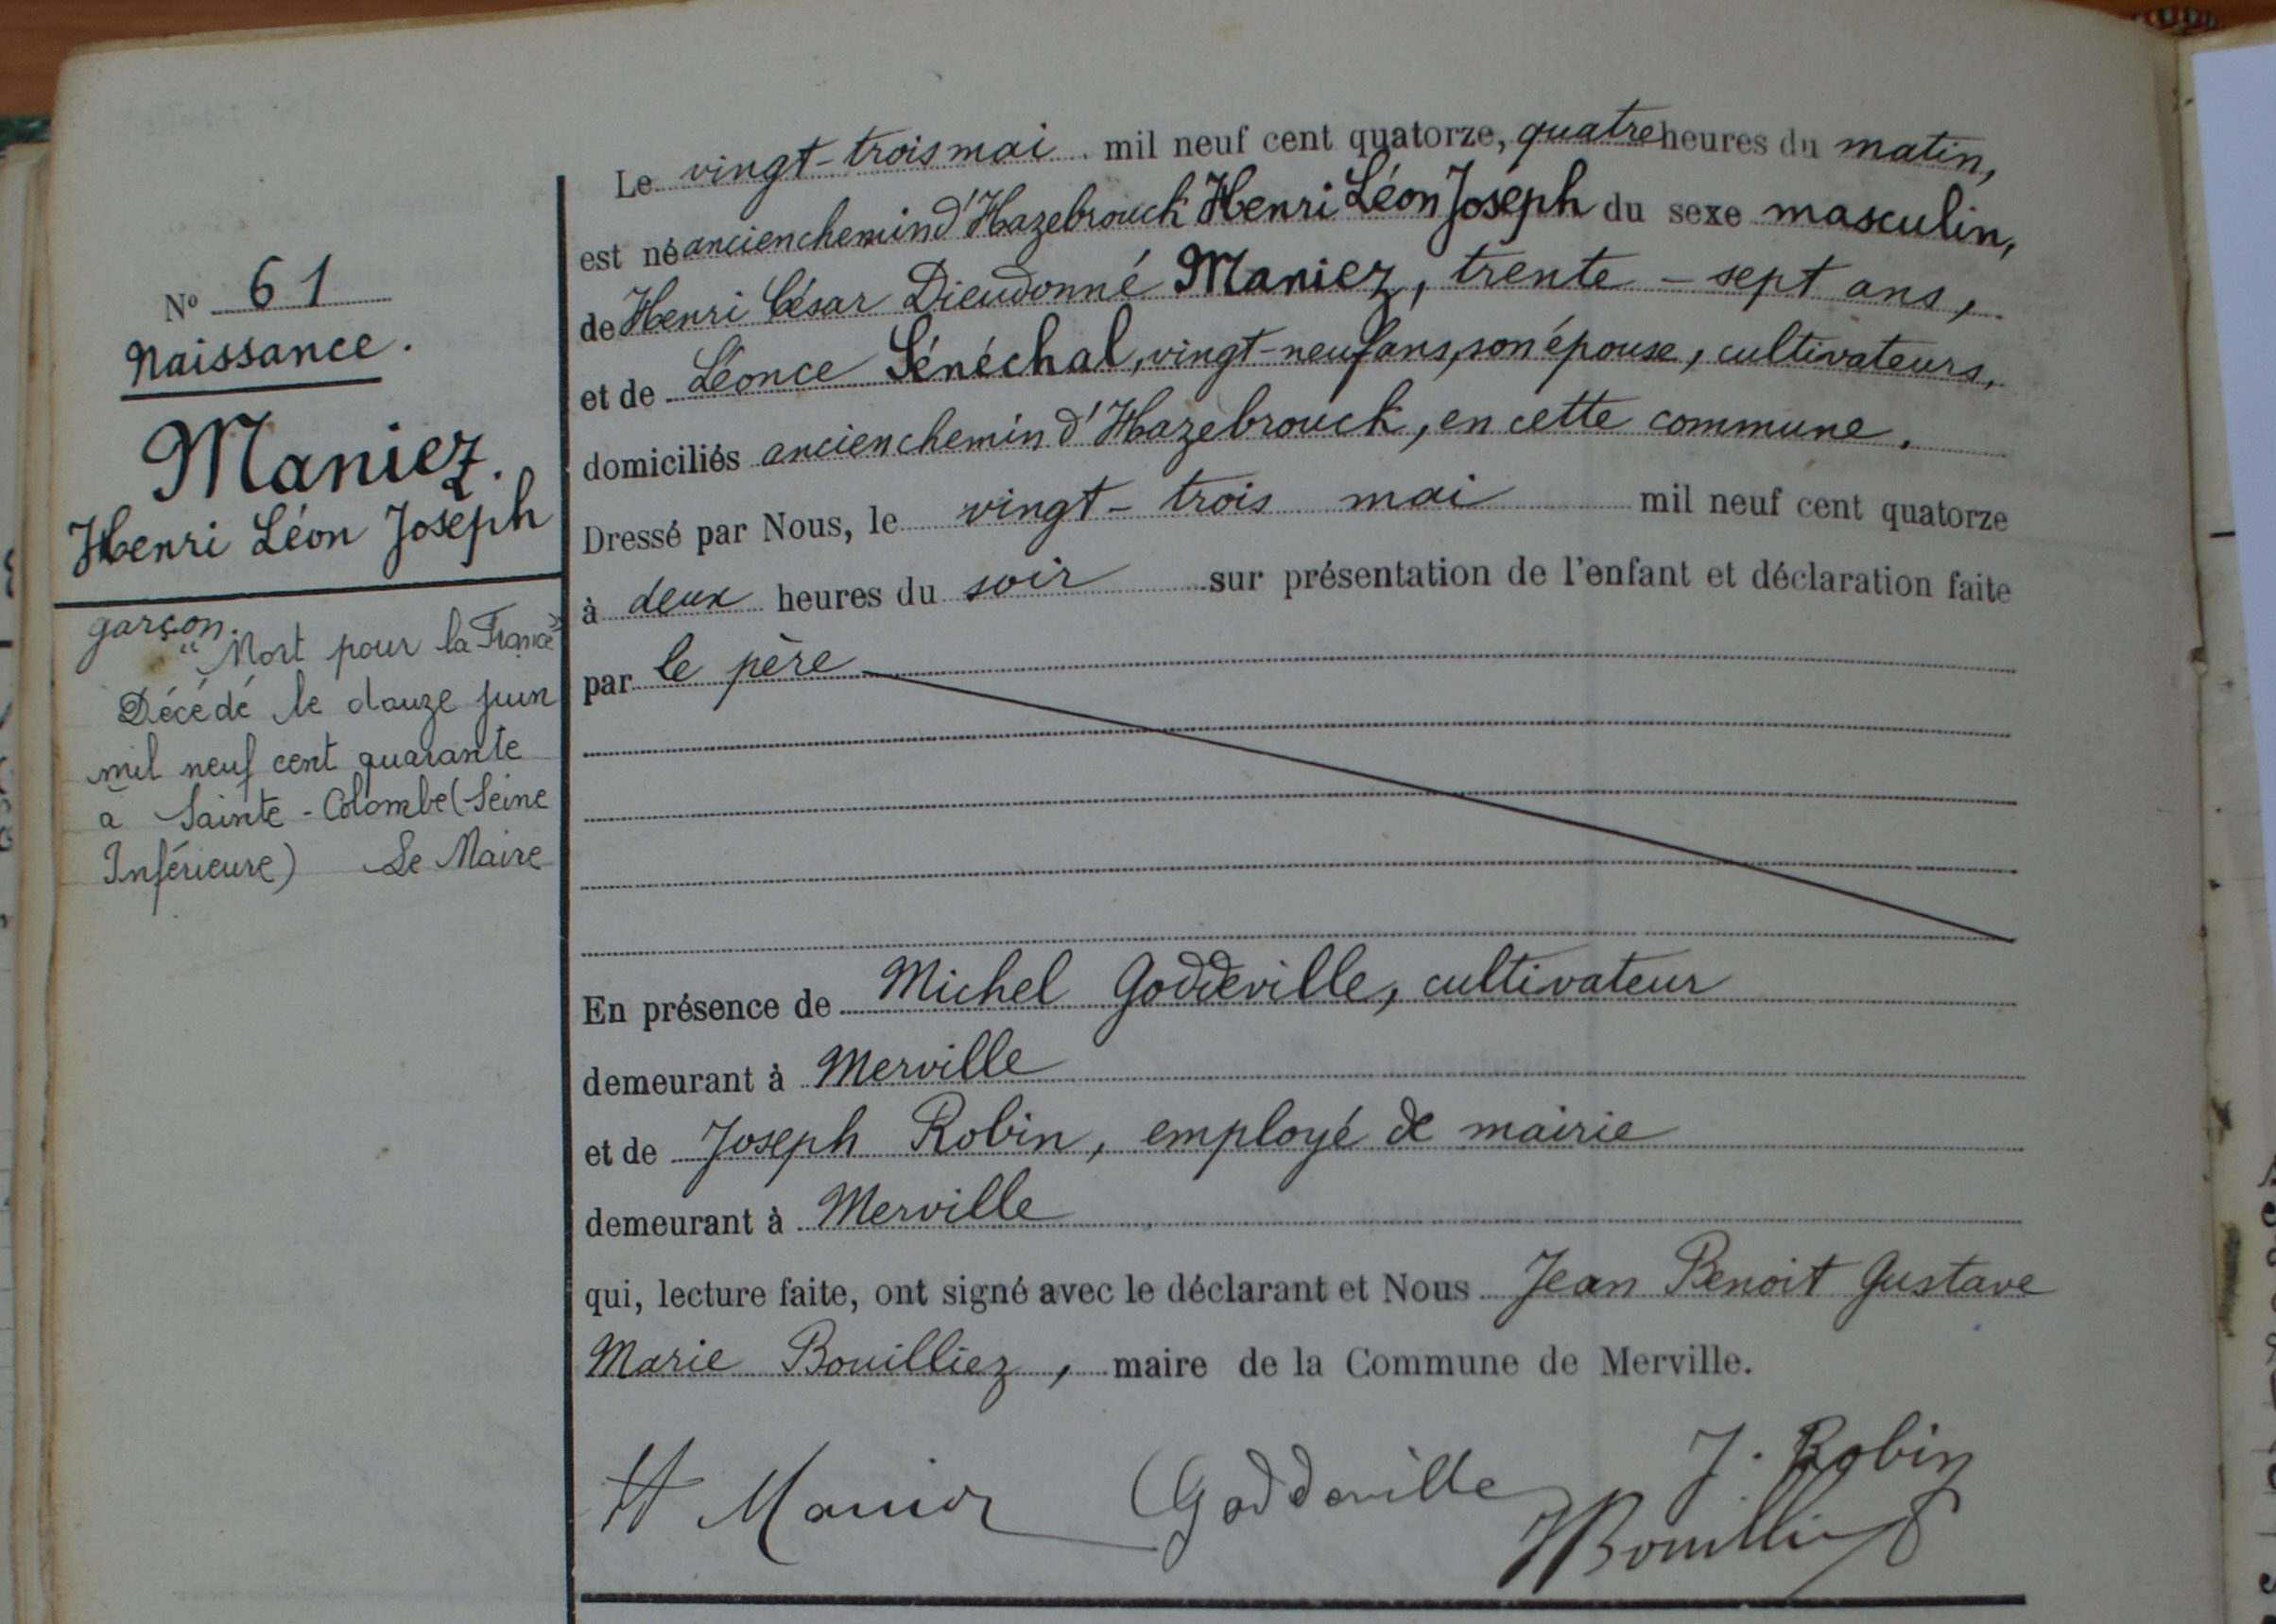 N° 61
Naissance.
Maniez.
Henri Léon Joseph
garçon.
"Mort pour la France"
Décédé le douze juin
mil neuf cent quarante
à Sainte-Colombe (Seine
Inférieure) Le Maire
Le vingt-trois mai mil neuf cent quatorze, quatre heures du matin,
est né ancien chemin d'Hazebrouck Henri Léon Joseph du sexe masculin,
de Henri César Dieudonné Maniez, trente-sept ans,
et de Léonce Sénéchal, vingt-neuf ans, son épouse, cultivateurs,
domiciliés ancien chemin d'Hazebrouck, en cette commune.
Dressé par Nous, le vingt-trois mai mil neuf cent quatorze
à deux heures du soir sur présentation de l'enfant et déclaration faite
par le père
En présence de Michel Goddeville, cultivateur
demeurant à Merville
et de Joseph Robin, employé de mairie
demeurant à Merville
qui, lecture faite, ont signé avec le déclarant et Nous Jean Benoit Gustave
Marie Bouilliez, maire de la Commune de Merville.
H Maniez Goddeville J. Robin
JBouilliez